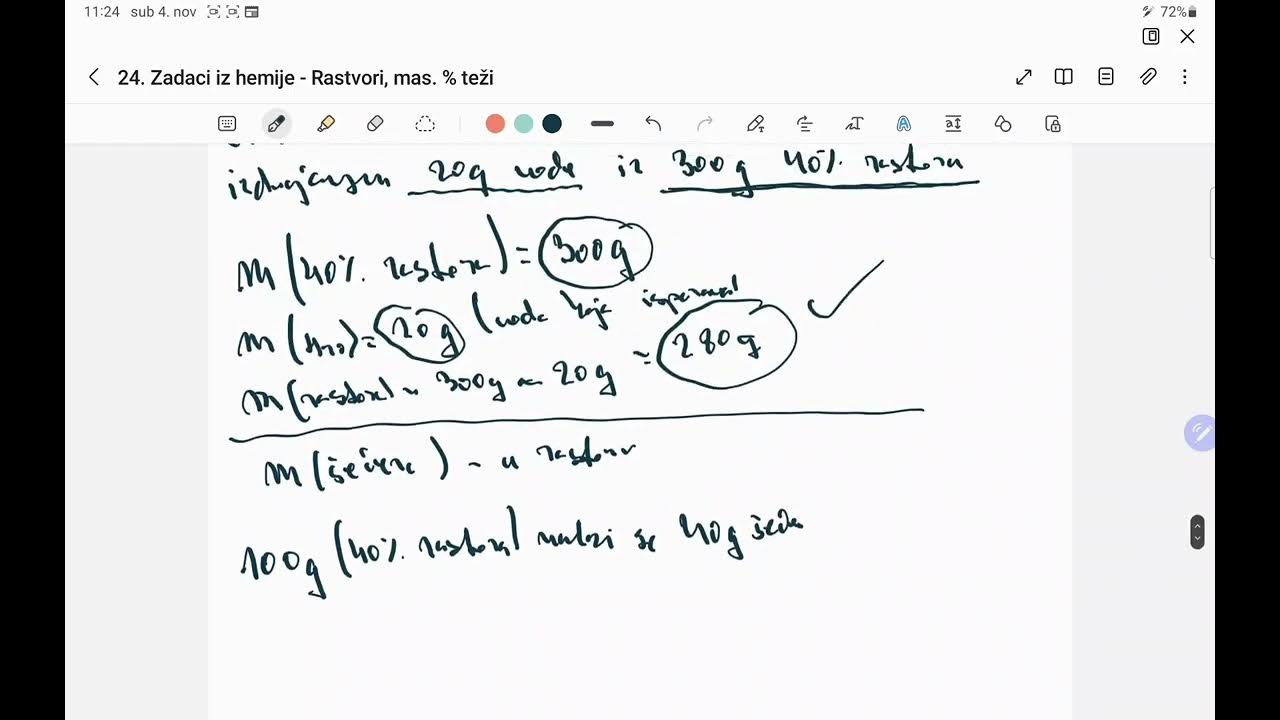 11:24 sub 4. nov 72%
24. Zadaci iz hemije - Rastvori, mas. % teži
izdvajanjem 20g vode iz 300g 40% rastvora
m(40% rastvora) = 300g
m(H2O) = 20g (voda koja isparava)
m(rastvora) = 300g - 20g = 280g
m(šećera) - u rastvoru
100g (40% rastvora) nalazi se 40g šeće